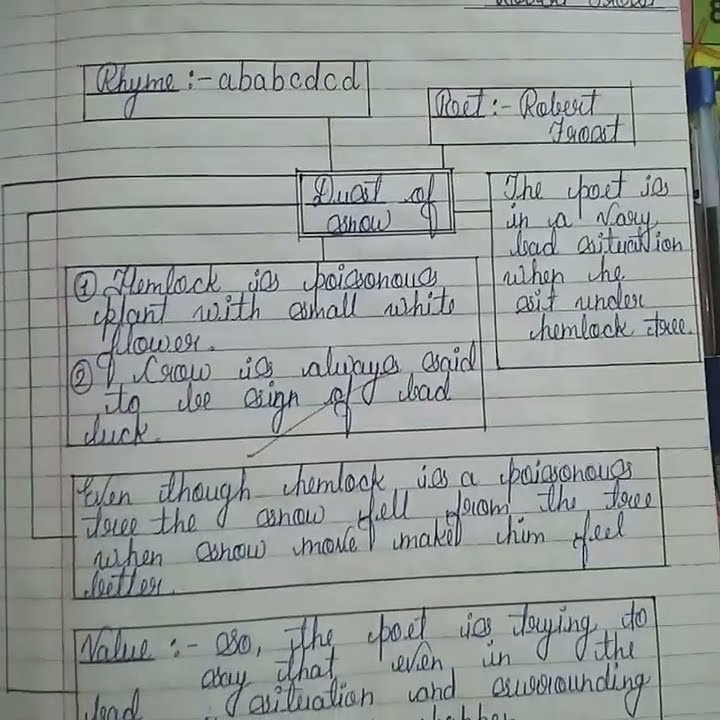 Rhyme :- ababcdcd
Poet :- Robert
Frost
Dust of
snow
The poet is
in a Vary
bad situation
when he
sit under
hemlock tree.
① Hemlock is poisonous
plant with small white
flower.
② Crow is always said
to be sign of bad
luck.
Even though hemlock is a poisonous
tree the snow fell from the tree
when snow move make him feel
better.
Value :- so, the poet is trying to
say that even in the
bad situation and surrounding